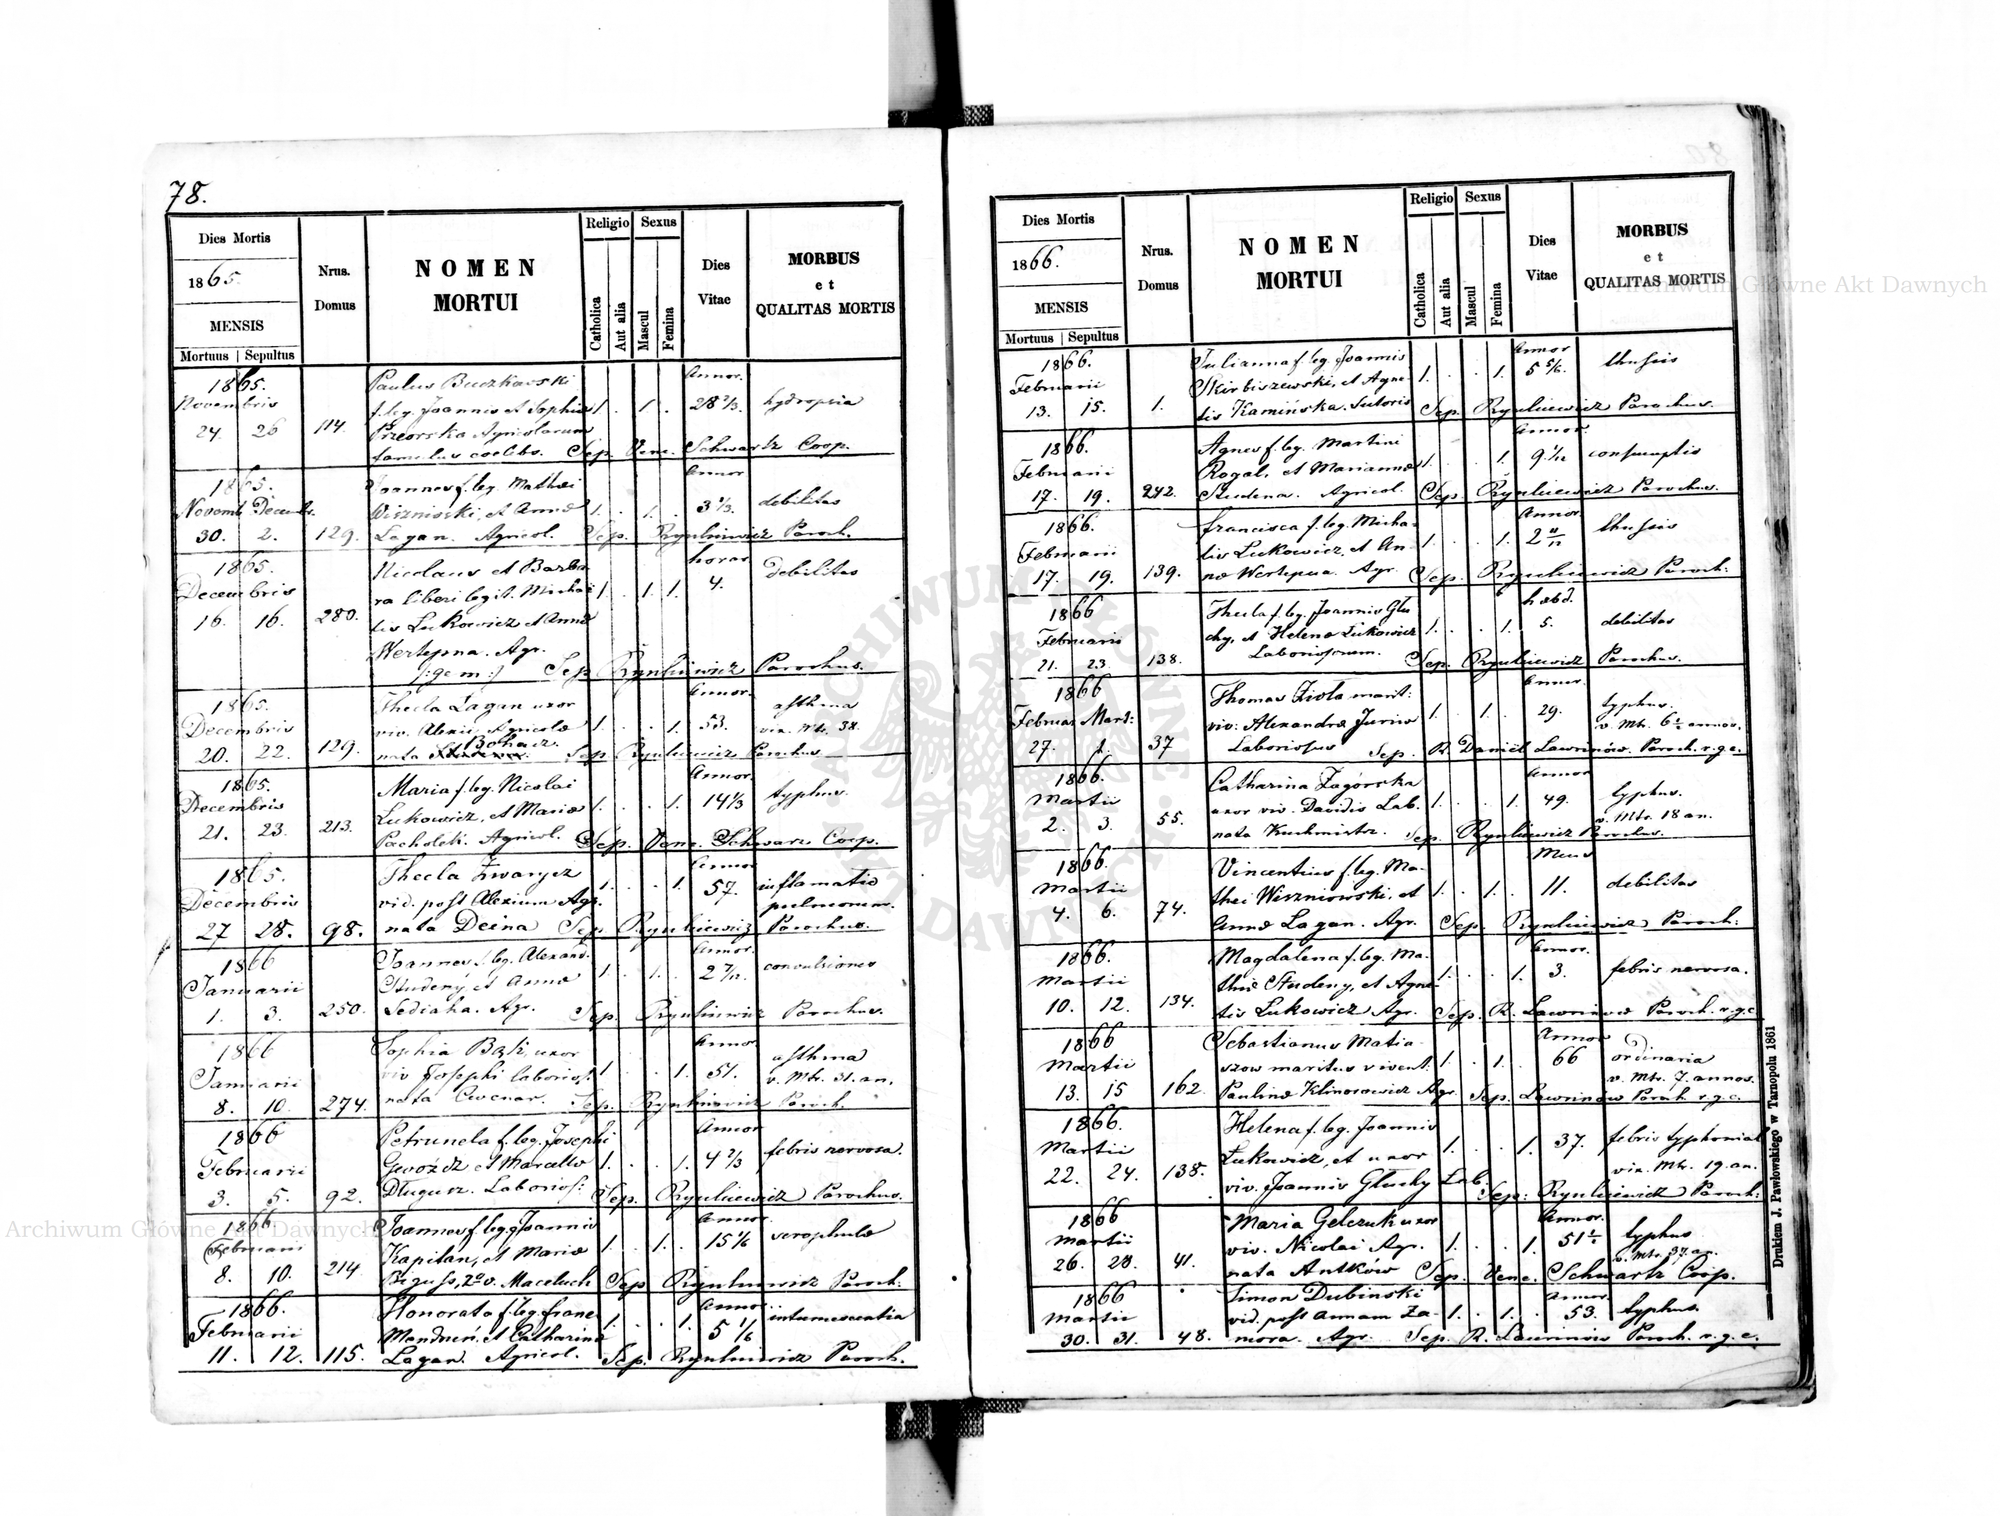 78.
Dies Mortis
1865.
MENSIS
Mortuus | Sepultus
Nrus. Domus
NOMEN
MORTUI
Religio
Catholica
Aut alia
Sexus
Mascul
Femina
Dies
Vitae
MORBUS
et
QUALITAS MORTIS
1865. Paulus Buczkowski Annor.
Novembris f. leg. Joannis et Sophiæ 1. . 1. . 28 2/3. hydropsia
24. 26 114. Agricolarum
famulus coelebs. Sep. Vene. Schwartz Coop.
1865. Joannes f. leg. Mathæi Annor
Novemb Decemb. Wisznioski, et Annæ 1. . 1. . 3 1/3. debilitas
30. 2. 129. Lagan. Agricol. Sep. Rynkiewicz Paroch.
1865. Nicolaus et Barba- horar
Decembris ra liberi legit. Michae- 1. . 1. 1. 4. debilitas
16. 16. 280. lis Lukowicz et Annæ
Wertepna. Agr.
/:gem:/ Sep Rynkiewicz Parochus.
1865. Thecla Lagan uxor Annor. asthma
Decembris viv. Alexii Agricolæ 1. . . 1. 53. vix. Mtr. 38.
20. 22. 129. nata Bohacz. Sep Rynkiewicz Parochus.
1865. Maria f. leg. Nicolai Annor
Decembris Lukowicz, et Mariæ 1. . . 1. 14 1/3 typhus.
21. 23. 213. Pacholek. Agricol. Sep. Vene. Schwarz Coop.
1865. Thecla Zwarycz Annor
Decembris vid. post Alexium Agr. 1. . . 1. 57. inflamatio
pulmonum.
27 28. 98. nata Deina Sep Rynkiewicz Parochus.
1866 Joannes f. leg. Alexand. Annor.
Januarii Studeny, et Annæ 1. . 1. . 2 7/12. convulsiones
1. 3. 250. Sediaha. Agr. Sep. Rynkiewicz Parochus.
1866 Sophia Bąk, uxor Annor. asthma
Januarii viv Josephi laborios. 1. . . 1. 51. v. Mtr. 31. an.
8. 10. 274. nata Cwenar. Sep. Rynkiewicz Paroch.
1866 Petrunela f. leg. Josephi Annor
Februarii Gwoźdz et Marcella 1. . . 1. 4 2/3 febris nervosa.
3. 5. 92. Długusz. Laborios: Sep. Rynkiewicz Parochus.
1866 Joannes f. leg. Joannis Annor.
Februarii Kapitan, et Mariæ 1. . 1. . 15 1/6 scrophulæ
8. 10. 214 2º v. Maceluch Sep Rynkiewicz Paroch.
1866. Honorata f. leg. Franc. Annor.
Februarii et Catharinæ 1. . . 1. 5 1/6 intumescentia
11. 12. 115. Lagan. Agricol. Sep. Rynkiewicz Paroch.
Dies Mortis
1866.
MENSIS
Mortuus | Sepultus
Nrus.
Domus
NOMEN
MORTUI
Religio
Catholica
Aut alia
Sexus
Mascul
Femina
Dies
Vitae
MORBUS
et
QUALITAS MORTIS
1866. Julianna f. leg. Joannis Annor
Februarii Skirbiszewski, et Agne- 1. . . 1. 5 5/6. thussis
13. 15. 1. tis Kamińska. Sutoris Sep. Rynkiewicz Parochus.
1866. Agnes f. leg. Martini Annor.
Februarii Rogal, et Mariannæ 1. . . 1. 9 1/12 consumptis
17. 19. 242. Studena. Agricol. Sep. Rynkiewicz Parochus.
1866. Francisca f. leg. Micha- Annor.
Februarii lis Lukowicz, et An- 1. . . 1. 2 11/12 thussis
17. 19. 139. næ Wertepna. Agr. Sep. Rynkiewicz Paroch:
1866 Thecla f. leg. Joannis Glu- hæbd.
Februarii chy, et Helenæ Lukowicz 1. . . 1. 5. debilitas
21. 23. 138. Laboriosorum. Sep. Rynkiewicz Parochus.
1866 Thomas Zioła marit: Annor. typhus.
Februar Mart: viv: Alexandræ Juriw 1. . 1. . 29. v. Mtr. 6 1/2 annos.
27. 1. 37 Laboriosus Sep. R. Daniël Lawrinów. Paroch. r. g. c.
1866. Catharina Zagórska Annor typhus.
Martii uxor viv. Davidis Lab. 1. . . 1. 49. v. Mtr. 18 an.
2. 3. 55. nata Kuchmistr. Sep. Rynkiewicz Parochus.
1866. Vincentius f. leg. Ma- Mens
Martii thei Wiszniowski, et 1. . 1. . 11. debilitas
4. 6. 74. Annæ Lagan. Agr. Sep. Rynkiewicz Paroch:
1866. Magdalena f. leg. Ma- Annor.
Martii thiæ Studeny, et Agne- 1. . . 1. 3. febris nervosa.
10. 12. 134. tis Lukowicz Agr. Sep. R. Lawrinów Paroch. r. g. c.
1866 Sebastianus Matia- Annor ordinaria
Martii szow maritus vivent. 1. . 1. . 66 v. Mtr. 7. annos.
13. 15 162. Paulinæ Klimowicz Agr. Sep. Lawrinów Paroch r. g. c.
1866. Helena f. leg. Joannis
Martii Lukowicz, et uxor 1. . . 1. 37. febris typhonial
vix. Mtr. 19. an.
22. 24. 138. viv. Joannis Gluchy Lab. Sep: Rynkiewicz Paroch:
1866 Maria Gelczuk uxor Annor. typhus
Martii viv. Nicolai Agr. 1. . . 1. 51 1/2 v. Mtr. 37. an.
26. 28. 41. nata Antków Sep. Vene. Schwartz Coop.
1866 Simon Dubinski Annor.
Martii vid. post Annam Za- 1. . 1. . 53. typhus.
30. 31. 48. mora. Agr. Sep. R. Lawrinów Paroch. r. g. c.
Drukiem J. Pawłowskiego w Tarnopolu 1861
ARCHIWUM GŁÓWNE AKT DAWNYCH
Archiwum Główne Akt Dawnych
Archiwum Główne Akt Dawnych